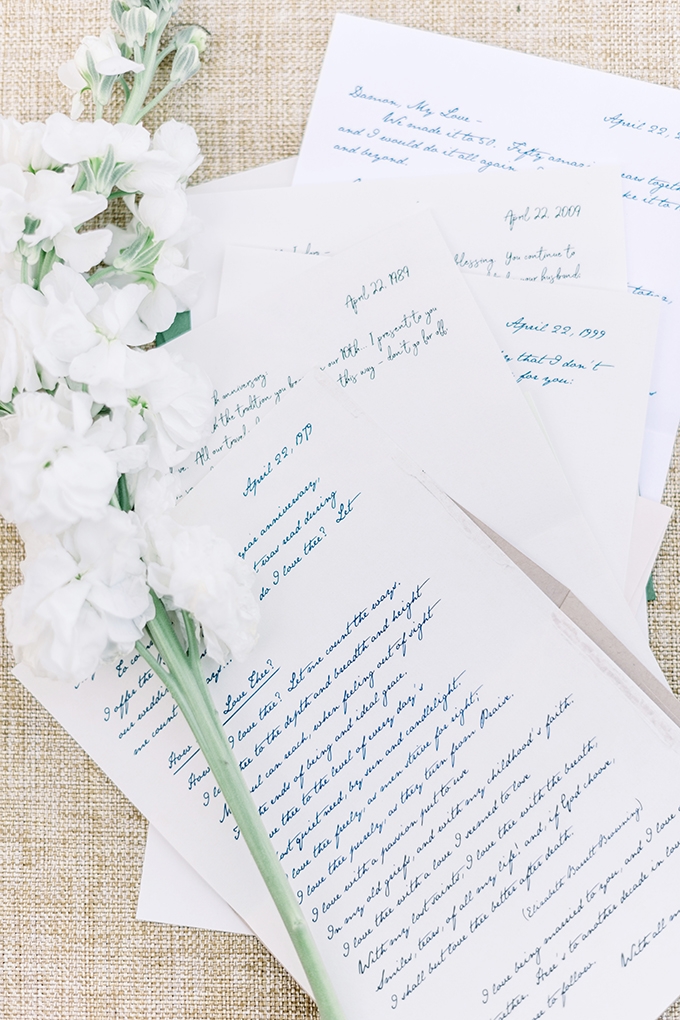 Damon, My Love -
April 22, 2
We made it to 50. Fifty
years together
and I would do it all again -
and beyond.
April 22, 2009
blessing. You continue to
husband.
April 22, 1999
that I don't
for you:
April 22, 1989
anniversary.
our 10th... I present to you
the tradition you
this way - don't go far off
All our
April 22, 1979
year anniversary,
was read during
do I love thee? Let
To
I offer the
our wedding
me count
ways...
How
Love Thee?
How
I love thee? Let me count the ways.
I
thee to the depth and breadth and height
My soul can reach, when feeling out of sight
For the ends of being and ideal grace.
I
thee to the level of every day's
Most quiet need, by sun and candlelight.
I love thee freely, as men strive for right,
I love thee purely, as they turn from Praise.
I love with a passion put to use
In my old griefs, and with my childhood's faith.
I love thee with a love I seemed to lose
With my lost saints, I love thee with the breath,
Smiles, tears, of all my life! and, if God choose,
I shall but love thee better after death.
(Elizabeth Barrett Browning)
I love being married to you, and I love
together. Here's to another decade in love
to follow.
With all m